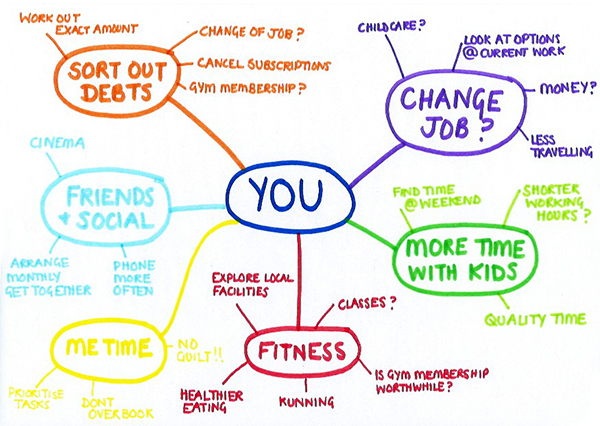 WORK OUT
EXACT AMOUNT
CHANGE OF JOB?
CANCEL SUBSCRIPTIONS
GYM MEMBERSHIP?
SORT OUT
DEBTS
CHILDCARE?
LOOK AT OPTIONS
@ CURRENT WORK
MONEY?
LESS
TRAVELLING
CHANGE
JOB?
YOU
CINEMA
FRIENDS
+ SOCIAL
ARRANGE
MONTHLY
GET TOGETHER
PHONE
MORE
OFTEN
FIND TIME
@ WEEKEND
SHORTER
WORKING
HOURS?
MORE TIME
WITH KIDS
QUALITY TIME
ME TIME
NO
GUILT!!
PRIORITISE
TASKS
DONT
OVERBOOK
EXPLORE LOCAL
FACILITIES
CLASSES?
FITNESS
HEALTHIER
EATING
RUNNING
IS GYM MEMBERSHIP
WORTHWHILE?